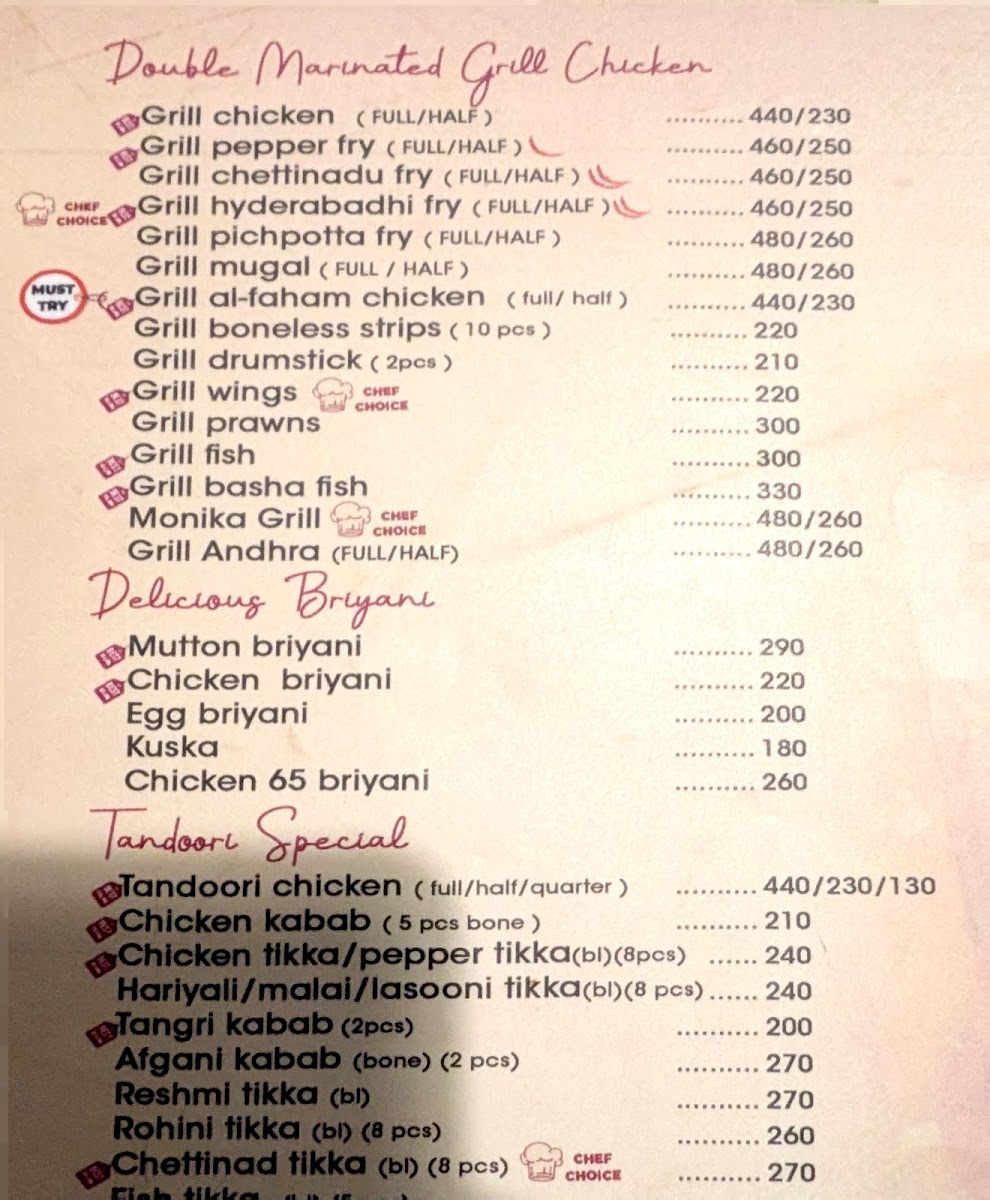 Double Marinated Grill Chicken
Grill chicken ( FULL/HALF ) .......... 440/230
Grill pepper fry ( FULL/HALF ) .......... 460/250
Grill chettinadu fry ( FULL/HALF ) .......... 460/250
CHEF CHOICE Grill hyderabadhi fry ( FULL/HALF ) .......... 460/250
Grill pichpotta fry ( FULL/HALF ) .......... 480/260
Grill mugal ( FULL / HALF ) .......... 480/260
MUST TRY Grill al-faham chicken ( full/ half ) .......... 440/230
Grill boneless strips ( 10 pcs ) .......... 220
Grill drumstick ( 2pcs ) .......... 210
Grill wings CHEF CHOICE .......... 220
Grill prawns .......... 300
Grill fish .......... 300
Grill basha fish .......... 330
Monika Grill CHEF CHOICE .......... 480/260
Grill Andhra (FULL/HALF) .......... 480/260
Delicious Briyani
Mutton briyani .......... 290
Chicken briyani .......... 220
Egg briyani .......... 200
Kuska .......... 180
Chicken 65 briyani .......... 260
Tandoori Special
Tandoori chicken ( full/half/quarter ) .......... 440/230/130
Chicken kabab ( 5 pcs bone ) .......... 210
Chicken tikka/pepper tikka(bl)(8pcs) ...... 240
Hariyali/malai/lasooni tikka(bl)(8 pcs) ...... 240
Tangri kabab (2pcs) .......... 200
Afgani kabab (bone) (2 pcs) .......... 270
Reshmi tikka (bl) .......... 270
Rohini tikka (bl) (8 pcs) .......... 260
Chettinad tikka (bl) (8 pcs) CHEF CHOICE .......... 270
Fish tikka